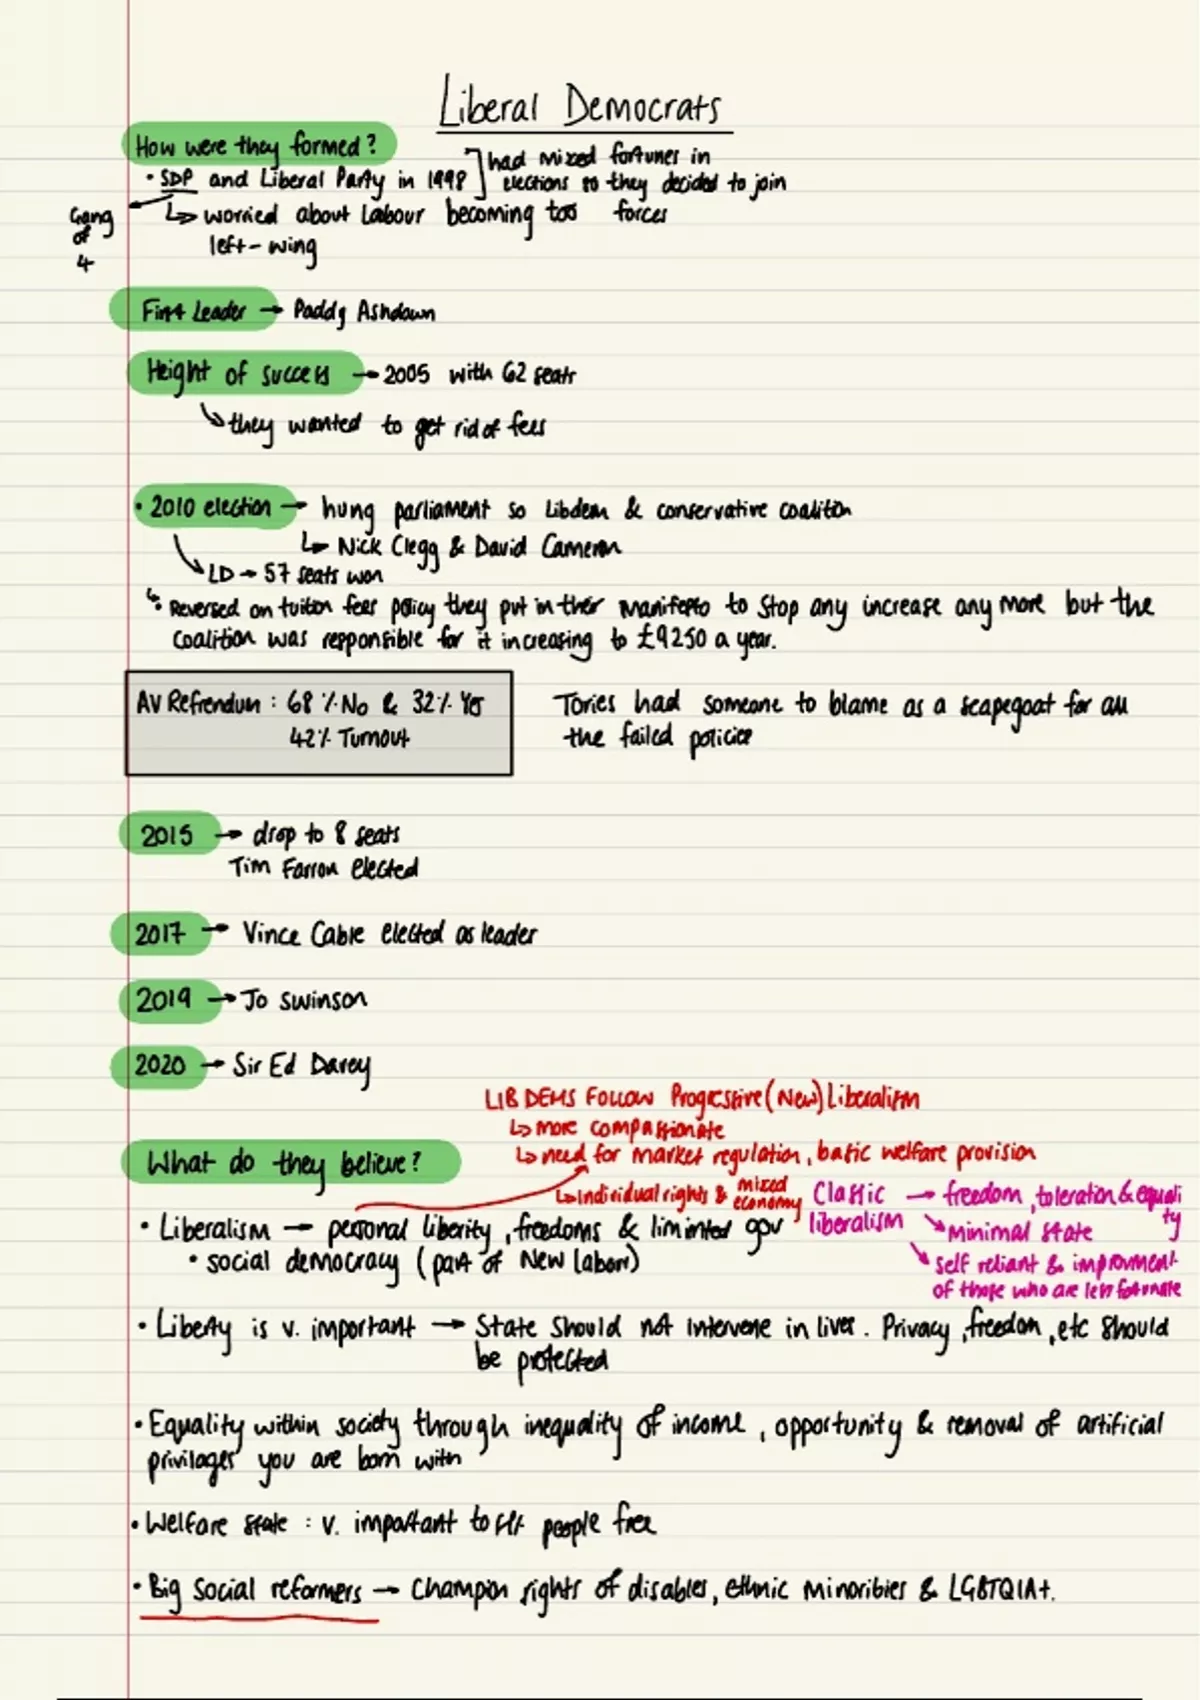 Liberal Democrats
How were they formed?
• SDP and Liberal Party in 1998
had mixed fortunes in
elections so they decided to join
forces
Gang
of
4
↳ worried about Labour becoming too
left-wing
First Leader → Paddy Ashdown
Height of success → 2005 with 62 seats
↳ they wanted to get rid of fees
• 2010 election → hung parliament so Libdem & conservative coalition
↳ Nick Clegg & David Cameron
↳ LD → 57 seats won
↳• Reversed on tuition fees policy they put in their manifesto to stop any increase any more but the
coalition was responsible for it increasing to £9250 a year.
AV Refrendum : 68% No & 32% Yes
42% Turnout
Tories had someone to blame as a scapegoat for all
the failed policies
2015 → drop to 8 seats
Tim Farron elected
2017 → Vince Cable elected as leader
2019 → Jo Swinson
2020 → Sir Ed Davey
LIB DEMS FOLLOW Progressive (New) Liberalism
↳ more compassionate
↳ need for market regulation, basic welfare provision
↳ Individual rights & mixed
economy
What do they believe?
Classic
liberalism
→ freedom, toleration & equali
ty
↘ minimal state
↘ self reliant & improvment
of those who are less fortunate
• Liberalism → personal liberity, freedoms & liminted gov
• social democracy (part of New labour)
• Liberty is v. important → State should not intervene in lives. Privacy, freedom, etc should
be protected
• Equality within society through inequality of income, opportunity & removal of artificial
privilages you are born with
• Welfare state : v. important to set people free
• Big social reformers → Champion rights of disables, ethnic minoribies & LGBTQIA+.